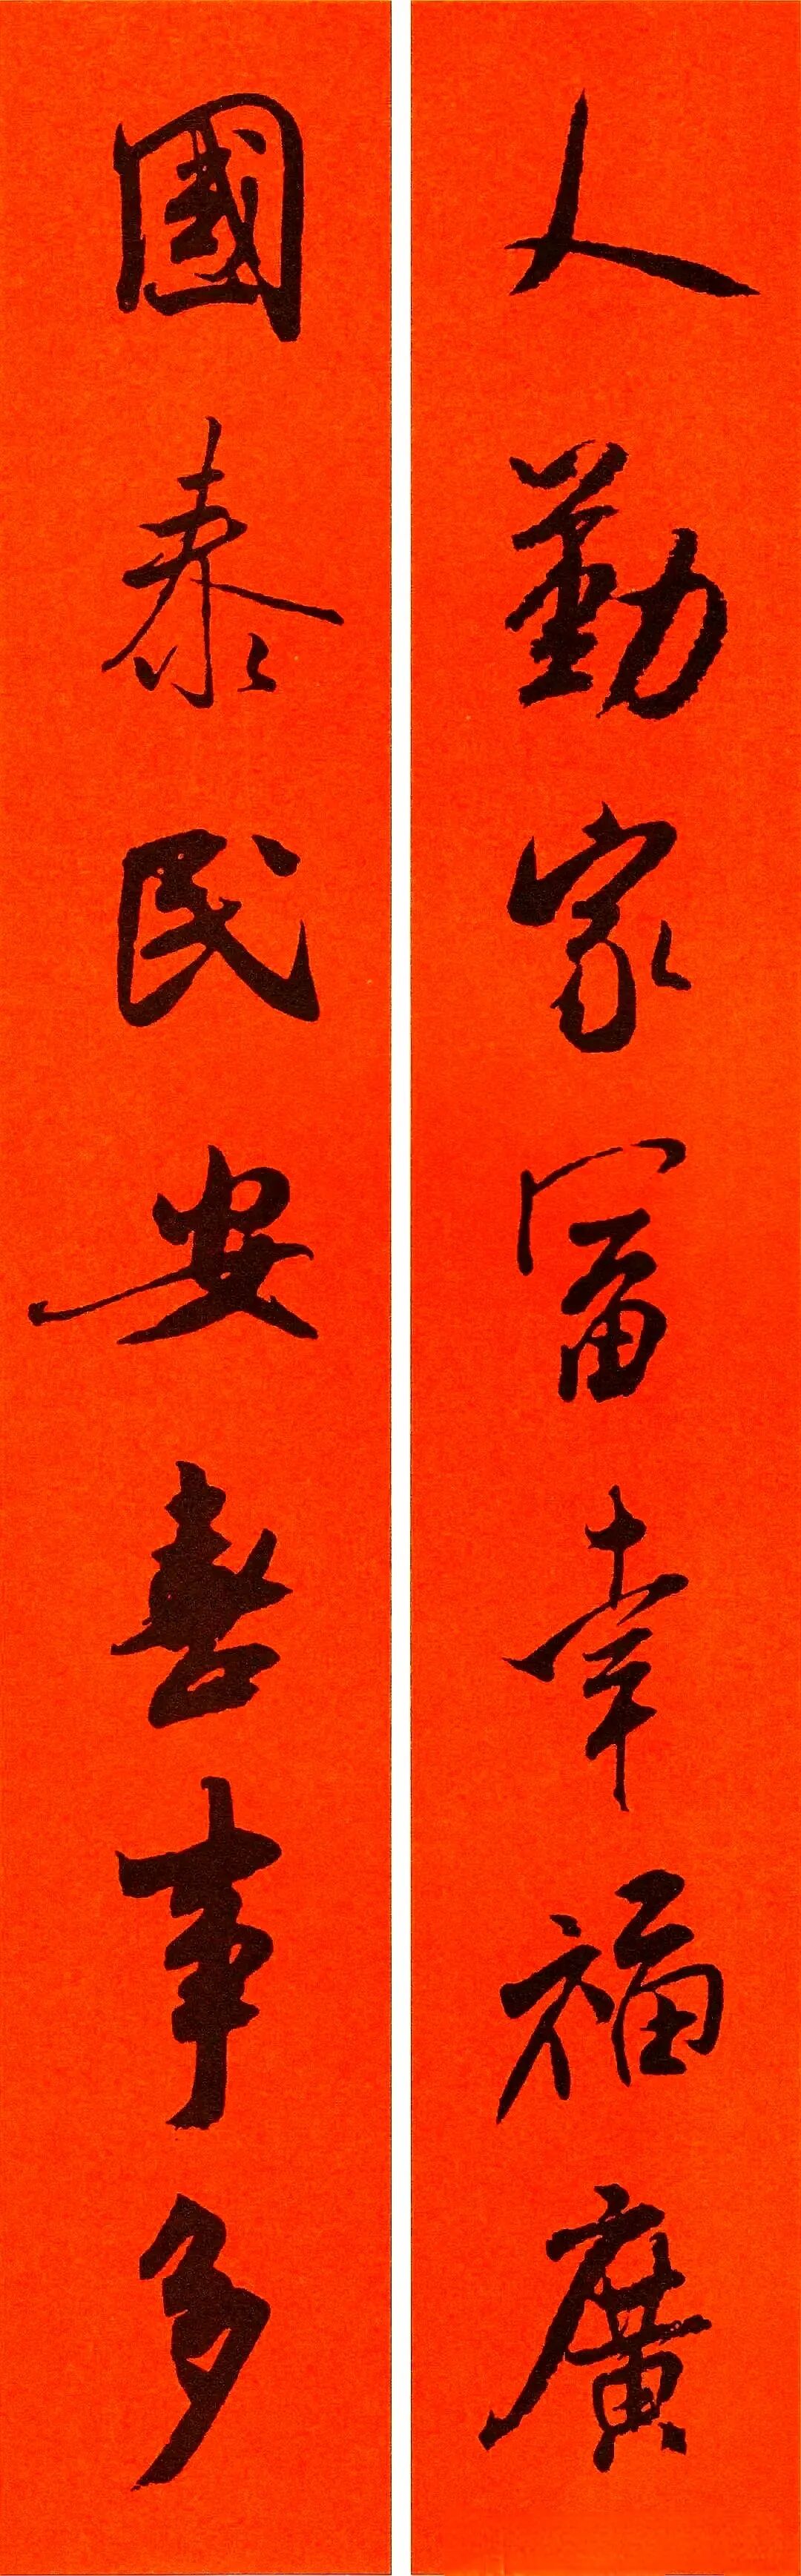 人勤家富幸福廣
國泰民安喜事多